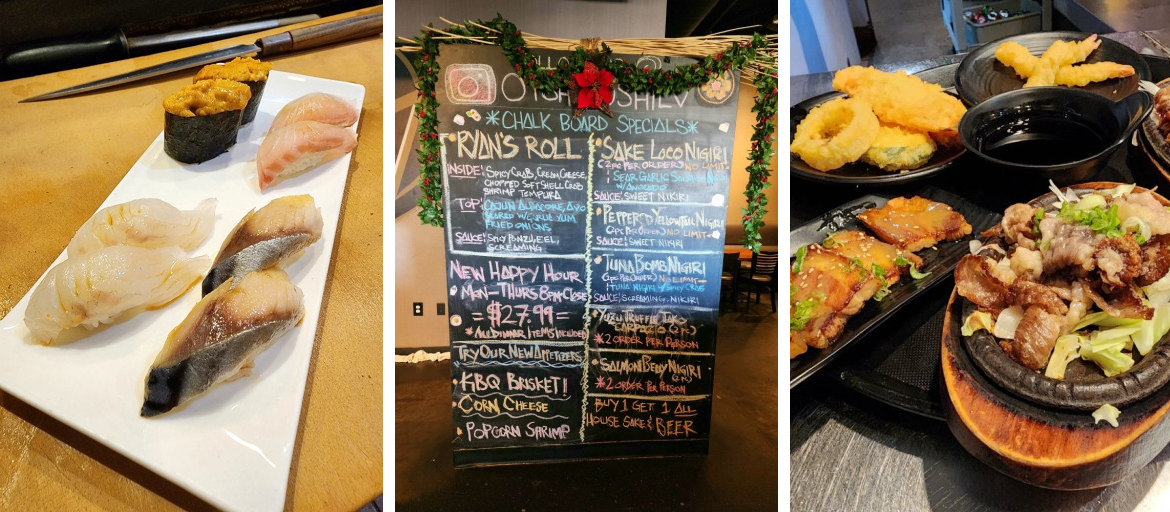 *CHALK BOARD SPECIALS*
RYAN'S ROLL
INSIDE: SPICY CRAB, CREAM CHEESE,
CHOPPED SOFT SHELL CRAB
SHRIMP TEMPURA
TOP: CAJUN ALBACORE, AVO
SEARED W/ YUM YUM
FRIED ONIONS
SAUCE: SPICY PONZU, EEL,
SCREAMING
NEW HAPPY HOUR
MON-THURS 8PM-CLOSE
=$27.99=
*ALL DINNER ITEMS INCLUDED
TRY OUR NEW APPETIZERS
KBQ BRISKET!
CORN CHEESE
POPCORN SHRIMP
SAKE LOCO NIGIRI
(2PC PER ORDER) NO LIMIT
SEAR GARLIC
W/ AVOCADO
SAUCE: SWEET NIKIRI
PEPPERED YELLOWTAIL NIGIRI
(2PC PER ORDER) NO LIMIT
SAUCE: SWEET NIKIRI
TUNA BOMB NIGIRI
(2PC PER ORDER) NO LIMIT
TUNA NIGIRI W/ SPICY CRAB
SAUCE: SCREAMING, NIKIRI
YUZU TRUFFLE TAKO
CARPACCIO
*2 ORDER PER PERSON
SALMON BELLY NIGIRI
*2 ORDER PER PERSON
BUY 1 GET 1 ALL
HOUSE SAKE & BEER